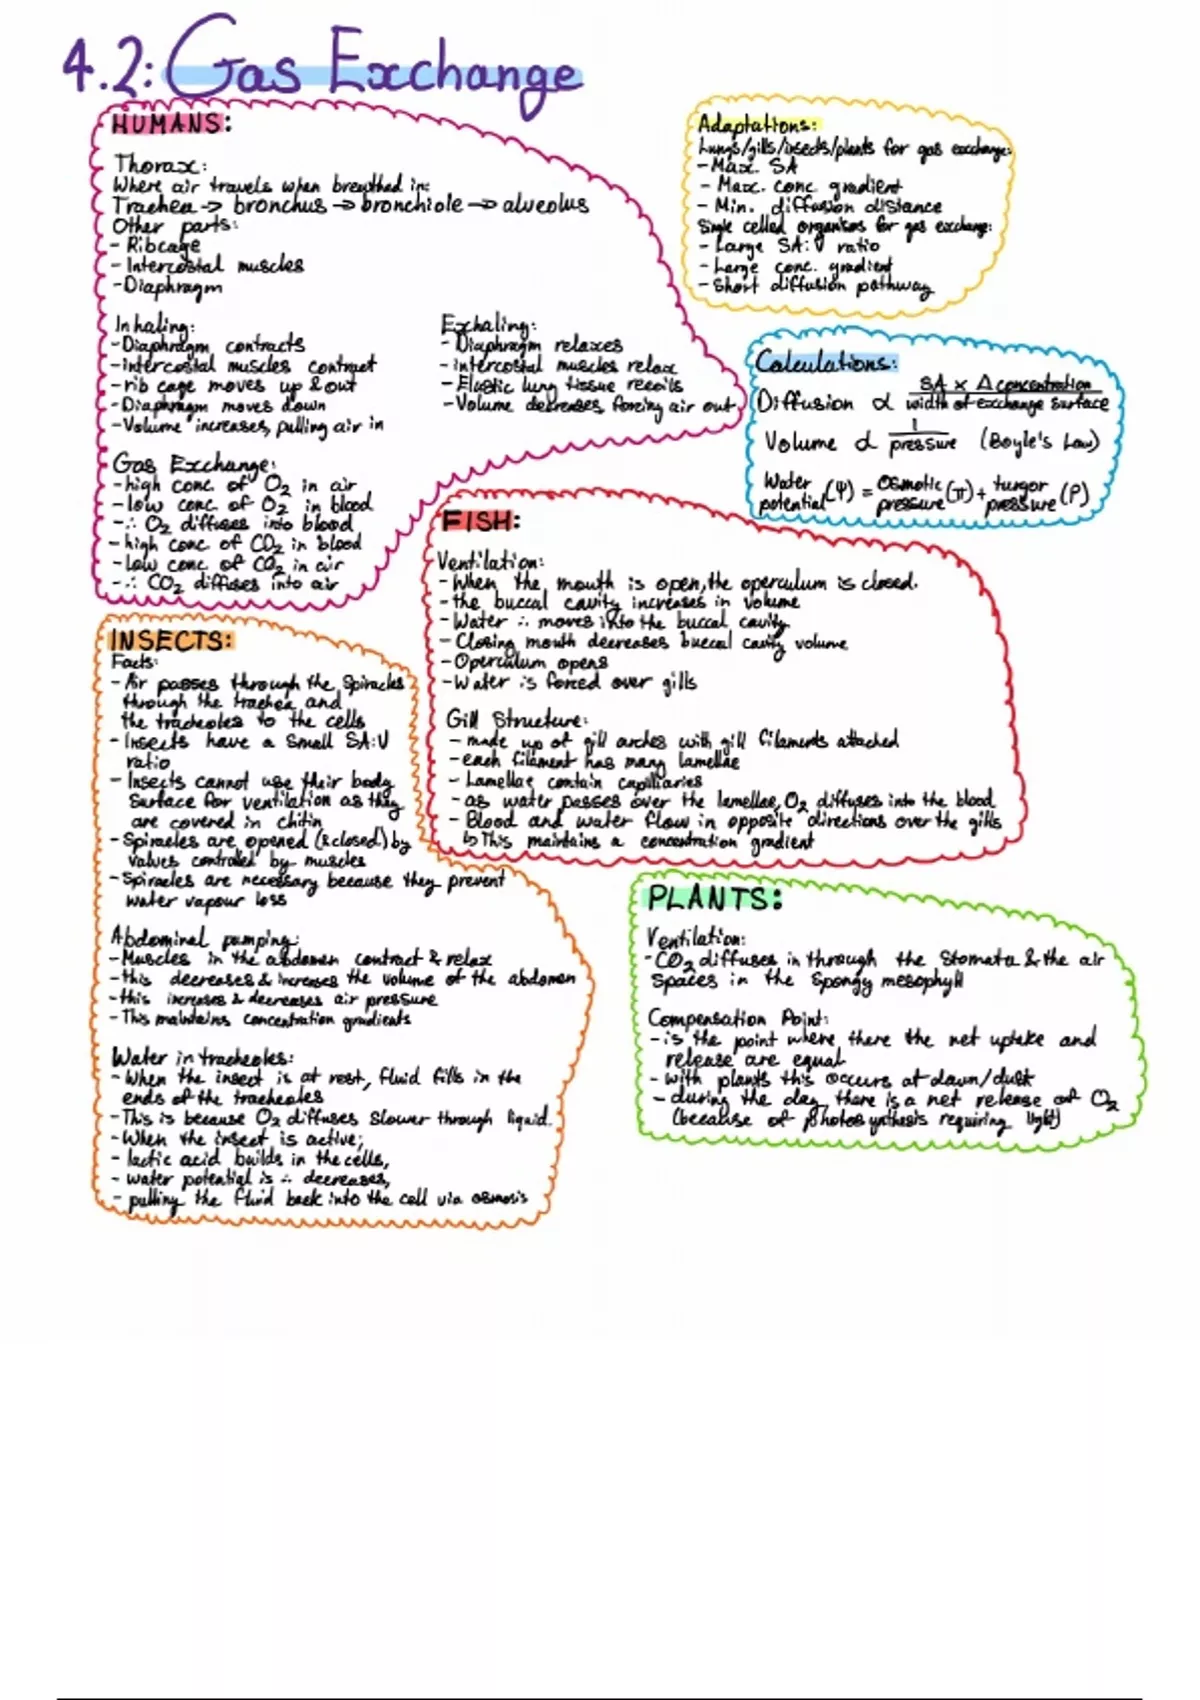 4.2: Gas Exchange
HUMANS:
Thorax:
Where air travels when breathed in:
Trachea -> bronchus -> bronchiole -> alveolus
Other parts:
- Ribcage
- Intercostal muscles
- Diaphragm
Inhaling:
- Diaphragm contracts
- intercostal muscles contract
- rib cage moves up & out
- Diaphragm moves down
- Volume increases, pulling air in
Exhaling:
- Diaphragm relaxes
- intercostal muscles relax
- Elastic lung tissue recoils
- Volume decreases, forcing air out
Gas Exchange:
- high conc. of O2 in air
- low conc. of O2 in blood
- ∴ O2 diffuses into blood
- high conc. of CO2 in blood
- low conc. of CO2 in air
- ∴ CO2 diffuses into air
Adaptations:
Lungs/gills/insects/plants for gas exchange:
- Max. SA
- Max. conc. gradient
- Min. diffusion distance
Single celled organisms for gas exchange:
- Large SA:V ratio
- Large conc. gradient
- Short diffusion pathway
Calculations:
Diffusion α SA × Δ concentration / width of exchange surface
Volume α 1 / pressure (Boyle's Law)
Water potential (Ψ) = Osmotic pressure (π) + turgor pressure (P)
FISH:
Ventilation:
- When the mouth is open, the operculum is closed.
- the buccal cavity increases in volume
- Water ∴ moves into the buccal cavity
- Closing mouth decreases buccal cavity volume
- Operculum opens
- Water is forced over gills
Gill Structure:
- made up of gill arches with gill filaments attached
- each filament has many lamellae
- Lamellae contain capilliaries
- as water passes over the lamellae, O2 diffuses into the blood
- Blood and water flow in opposite directions over the gills
↳ This maintains a concentration gradient
INSECTS:
Facts:
- Air passes through the spiracles
through the trachea and
the tracheoles to the cells
- Insects have a small SA:V
ratio
- Insects cannot use their body
surface for ventilation as they
are covered in chitin
- Spiracles are opened (& closed) by
valves controlled by muscles
- Spiracles are necessary because they prevent
water vapour loss
Abdominal pumping:
- Muscles in the abdomen contract & relax
- this decreases & increases the volume of the abdomen
- this increases & decreases air pressure
- This maintains concentration gradients
Water in tracheoles:
- When the insect is at rest, fluid fills in the
ends of the tracheoles
- This is because O2 diffuses slower through liquid.
- When the insect is active;
- lactic acid builds in the cells,
- water potential is ∴ decreases,
- pulling the fluid back into the cell via osmosis
PLANTS:
Ventilation:
- CO2 diffuses in through the stomata & the air
spaces in the spongy mesophyll
Compensation Point:
- is the point where there the net uptake and
release are equal
- with plants this occurs at dawn/dusk
- during the day there is a net release of O2
(because of photosynthesis requiring light)